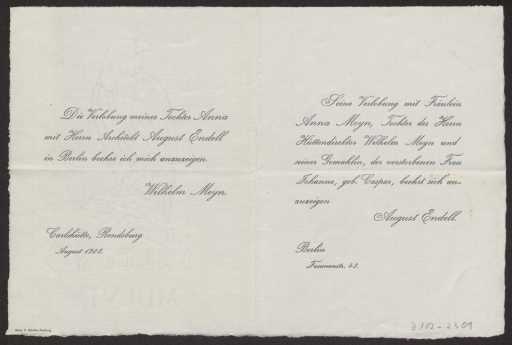 Die Verlobung meiner Tochter Anna
mit Herrn Architekt August Endell
in Berlin beehre ich mich anzuzeigen.
Wilhelm Meyn.
Carlshütte, Rendsburg
August 1908.
Seine Verlobung mit Fräulein
Anna Meyn, Tochter des Herrn
Hüttendirektor Wilhelm Meyn und
seiner Gemahlin, der verstorbenen Frau
Johanna, geb. Caspar, beehrt sich an-
zuzeigen
August Endell.
Berlin